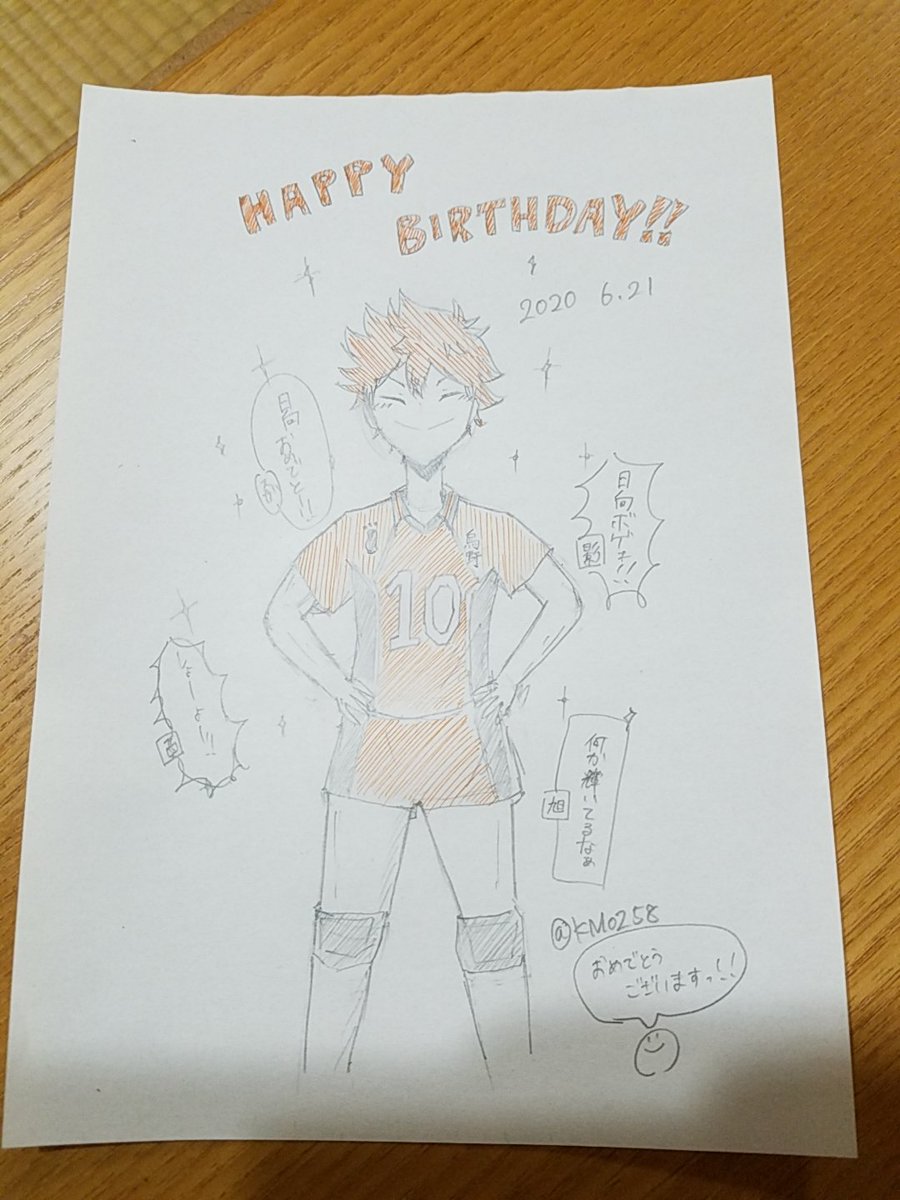 HAPPY
BIRTHDAY!!
2020 6.21
日向、おめでとう!!
日向ボゲェ!!
影
烏野
10
しょーよー!!
何か輝いてるなぁ
旭
@KM0258
おめでとう
ございますっ!!